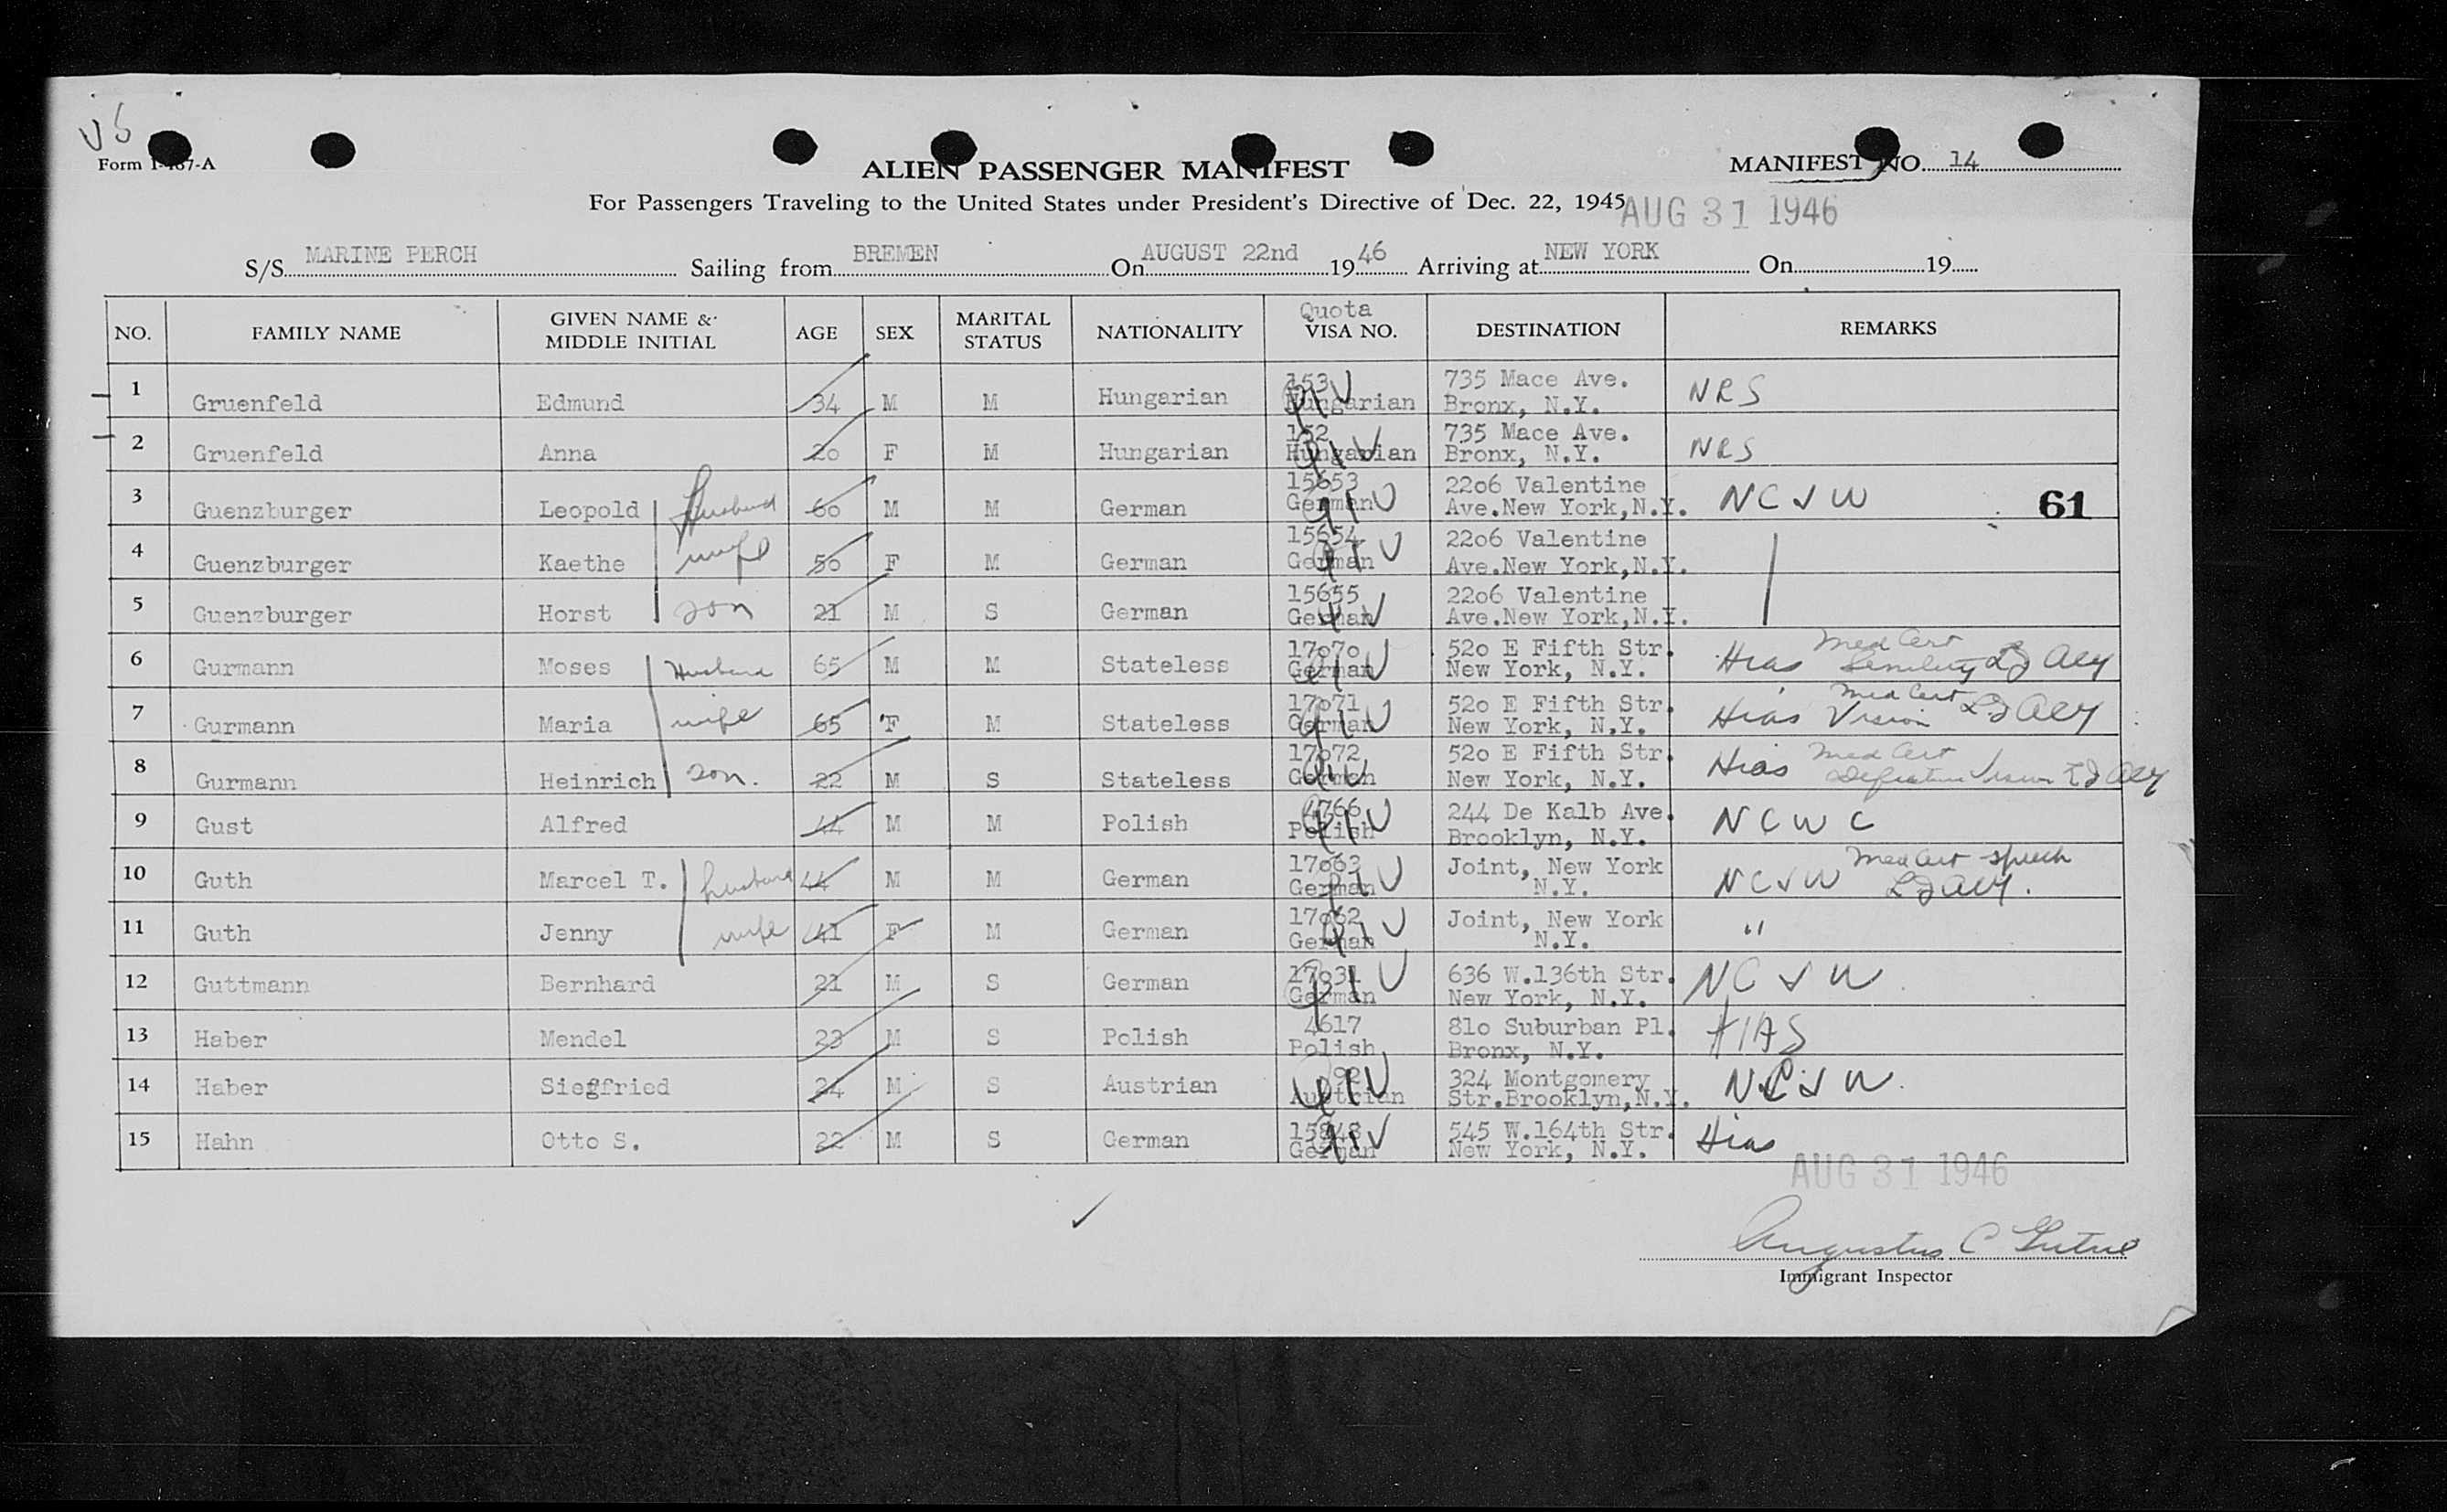 V5
Form I-487-A
ALIEN PASSENGER MANIFEST
MANIFEST NO. 14
For Passengers Traveling to the United States under President's Directive of Dec. 22, 1945
AUG 31 1946
S/S MARINE PERCH Sailing from BREMEN On AUGUST 22nd 1946 Arriving at NEW YORK On 19
NO. FAMILY NAME GIVEN NAME & MIDDLE INITIAL AGE SEX MARITAL STATUS NATIONALITY Quota VISA NO. DESTINATION REMARKS
1 Gruenfeld Edmund 34 M M Hungarian 153 Hungarian 735 Mace Ave. Bronx, N.Y. NRS
2 Gruenfeld Anna 20 F M Hungarian 152 Hungarian 735 Mace Ave. Bronx, N.Y. NRS
3 Guenzburger Leopold Husband 60 M M German 15653 German 2206 Valentine Ave.New York,N.Y. NCJW 61
4 Guenzburger Kaethe wife 50 F M German 15654 German 2206 Valentine Ave.New York,N.Y.
5 Guenzburger Horst son 21 M S German 15655 German 2206 Valentine Ave.New York,N.Y.
6 Gurmann Moses Husband 65 M M Stateless 17070 German 520 E Fifth Str. New York, N.Y. Hias Med Cert Senility
7 Gurmann Maria wife 65 F M Stateless 17071 German 520 E Fifth Str. New York, N.Y. Hias Med Cert Vision
8 Gurmann Heinrich son. 22 M S Stateless 17072 German 520 E Fifth Str. New York, N.Y. Hias Med Cert Defective Vision
9 Gust Alfred 44 M M Polish 4766 Polish 244 De Kalb Ave. Brooklyn, N.Y. NCWC
10 Guth Marcel T. husband 44 M M German 17063 German Joint, New York N.Y. NCJW Med Cert speech
11 Guth Jenny wife 41 F M German 17062 German Joint, New York N.Y. "
12 Guttmann Bernhard 21 M S German 17031 German 636 W.136th Str. New York, N.Y. NCJW
13 Haber Mendel 23 M S Polish 4617 Polish 810 Suburban Pl. Bronx, N.Y. HIAS
14 Haber Siegfried 24 M S Austrian Austrian 324 Montgomery Str.Brooklyn,N.Y. NCJW
15 Hahn Otto S. 22 M S German 15848 German 545 W.164th Str. New York, N.Y. Hias
AUG 31 1946
Augustus C
Immigrant Inspector